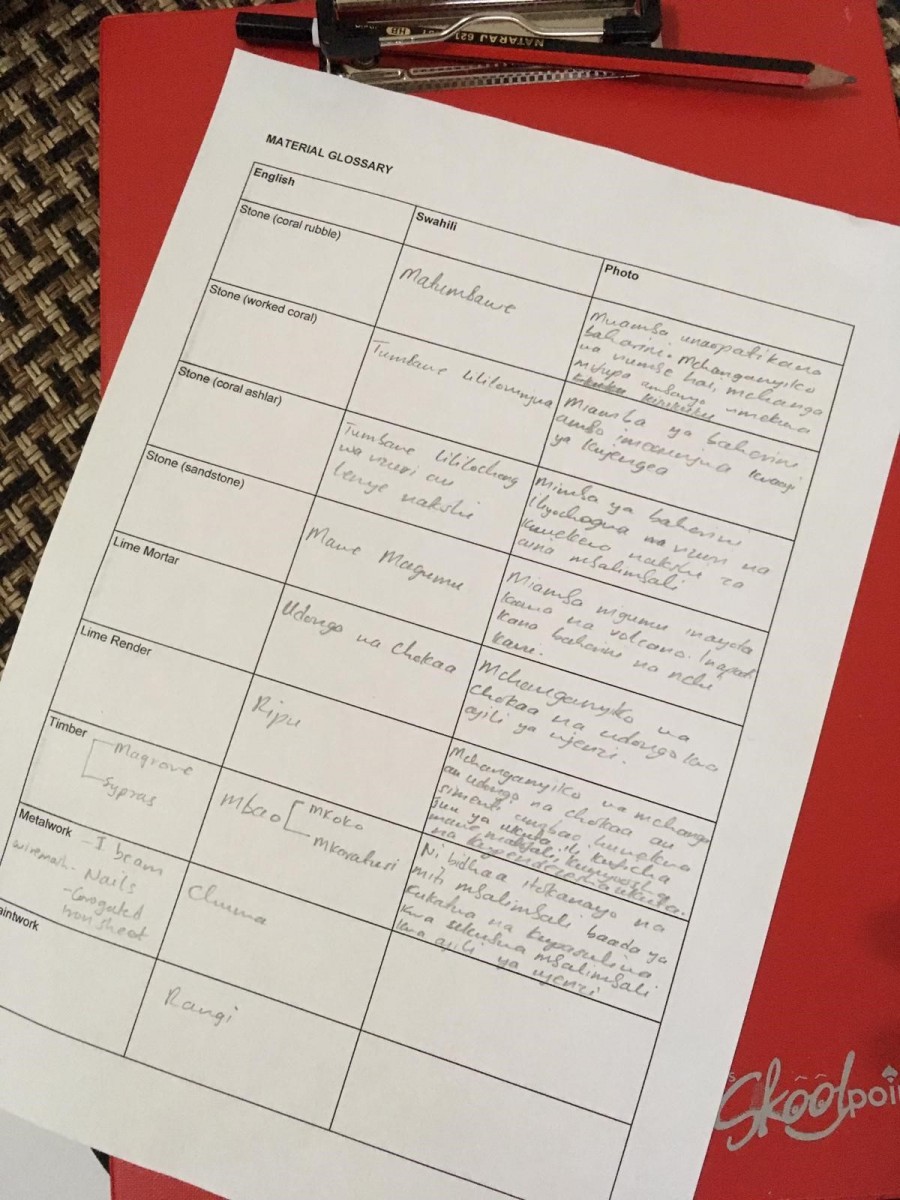 NATARAJ 621 HB
MATERIAL GLOSSARY
English
Swahili
Photo
Stone (coral rubble)
Matumbawe
Muamba unaopatikana
baharini. Mchanganyiko
wa viumbe hai, mchanga
mifupa ambayo
Stone (worked coral)
Tumbawe lililovunjwa
Miamba ya baharini
ambo imevunjwa kwaaji
ya kujengea
Stone (coral ashlar)
Tumbawe lililochong
wa vizuri au
lenye nakshi
Mimba ya baharini
iliyochogwa vizuri na
kuwekewa nakshi za
aina mbalimbali
Stone (sandstone)
Mawe Magumu
Miamba migumu inayota
kana na volcano. Inapati
kana baharini na nchi
kavu.
Lime Mortar
Udongo na Chokaa
Mchanganyiko wa
chokaa na udongo kwa
ajili ya ujenzi.
Lime Render
Ripu
Mchanganyiko wa mchanga
au udongo na chokaa au
simenti ambao huwekwa
juu ya ukuta ili kuficha
mawe
na kupendezesha ukuta.
Timber
Magrove
sypras
Mbao
mkoko
mkaratusi
Ni bidhaa itokanayo na
miti mbalimbali baada ya
kukatwa na kupasuliwa
kwa
mbalimbali
kwa ajili ya ujenzi
Metalwork
- I beam
wiremesh - Nails
- Corogated
iron sheet
Chuma
aintwork
Rangi
Skoolpoi